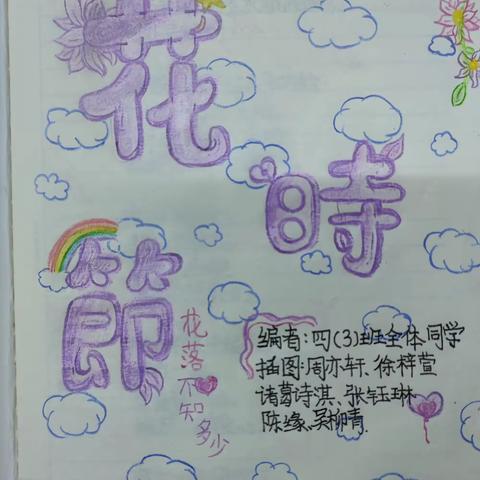 花
時
節
花落不知多少
编者:四(3)班全体同学
插图:周亦轩、徐梓萱
诸葛诗淇、张钰琳
陈缘、吴柳青